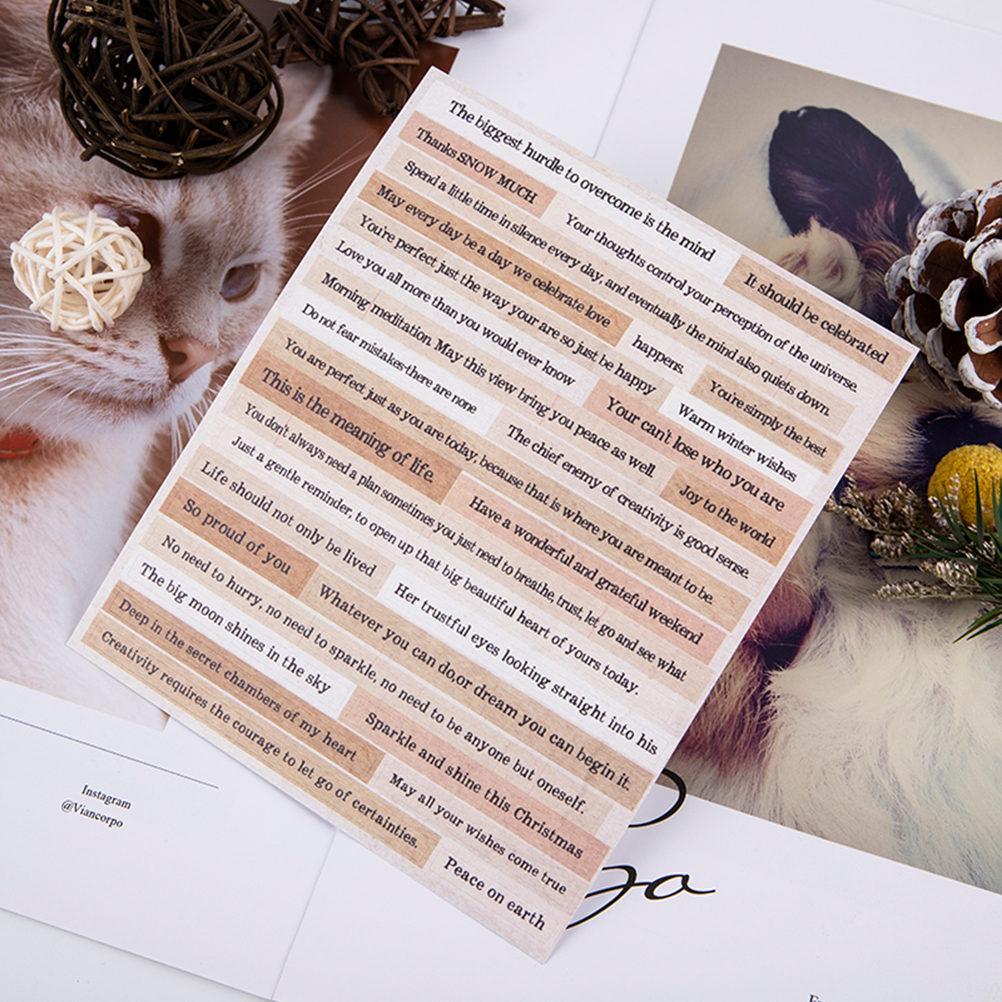 The biggest hurdle to overcome is the mind
Thanks SNOW MUCH
Your thoughts control your perception of the universe.
It should be celebrated
Spend a little time in silence every day, and eventually the mind also quiets down.
May every day be a day we celebrate love
happers.
You're simply the best
You're perfect just the way your are so just be happy
Warm winter wishes
Love you all more than you would ever know
Your can't lose who you are
Morning meditation. May this view bring you peace as well.
Joy to the world
Do not fear mistakes-there are none
The chief enemy of creativity is good sense.
You are perfect just as you are today, because that is where you are meant to be.
This is the meaning of life.
Have a wonderful and grateful weekend
You don't always need a plan sometimes you just need to breathe, trust, let go and see what
Just a gentle reminder, to open up that big beautiful heart of yours today.
Life should not only be lived
Her trustful eyes looking straight into his
So proud of you
Whatever you can do,or dream you can begin it.
No need to hurry, no need to sparkle, no need to be anyone but oneself.
The big moon shines in the sky
Sparkle and shine this Christmas
Deep in the secret chambers of my heart
May all your wishes come true
Creativity requires the courage to let go of certainties.
Peace on earth
Instagram
@Viancorpo